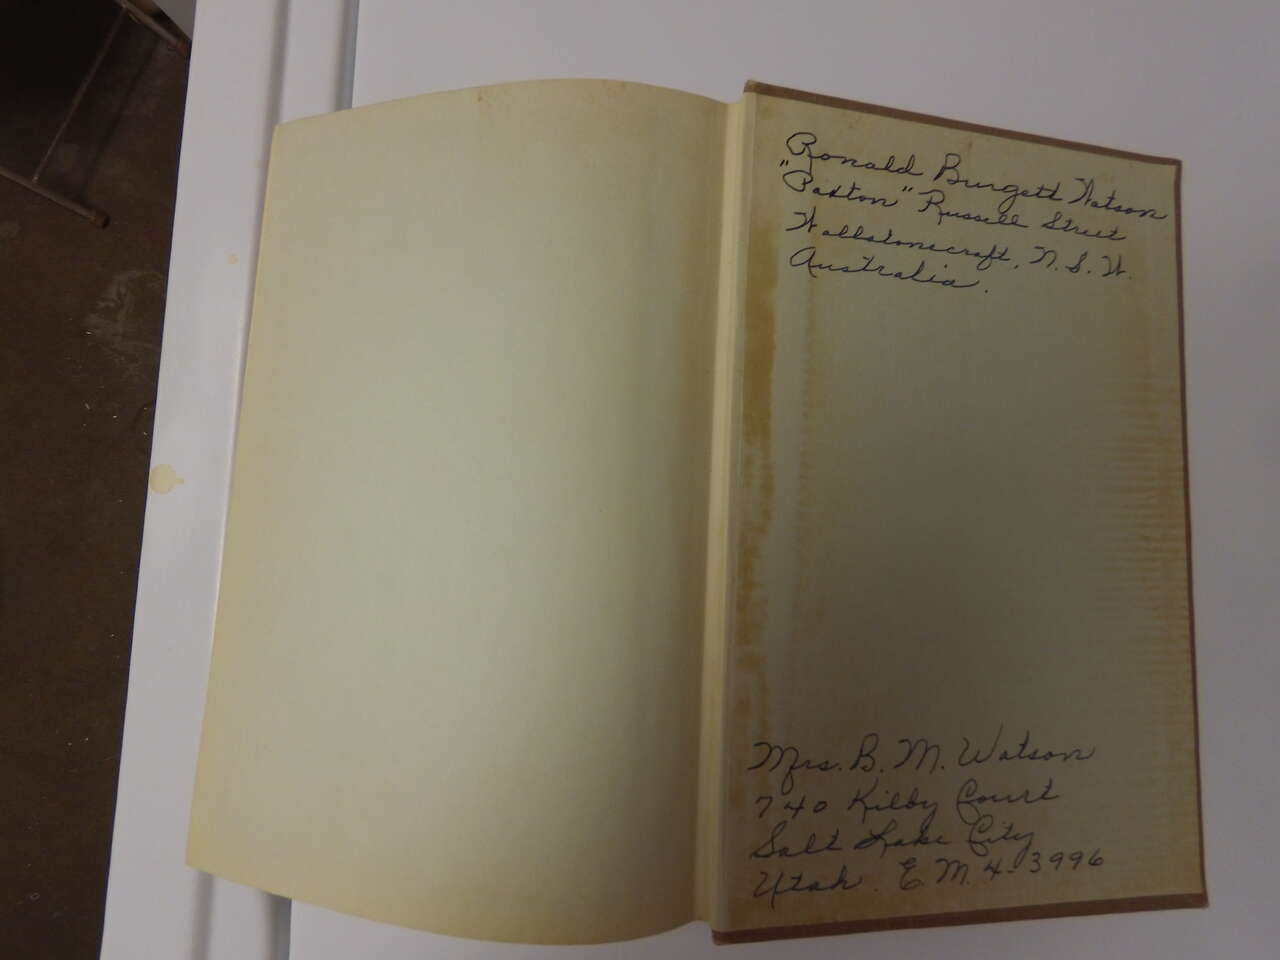 Ronald Burgett Watson
"Paxton" Russell Street
Wollstonecraft, N. S. W.
Australia.
Mrs. B. M. Watson
740 Kilby Court
Salt Lake City
Utah. E. M. 4-3996